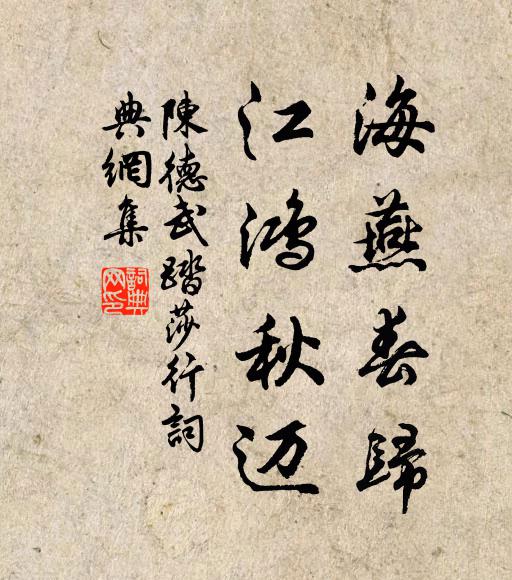 海燕春歸
江鴻秋迈
陳德武踏莎行詞
典網集
詞典網印